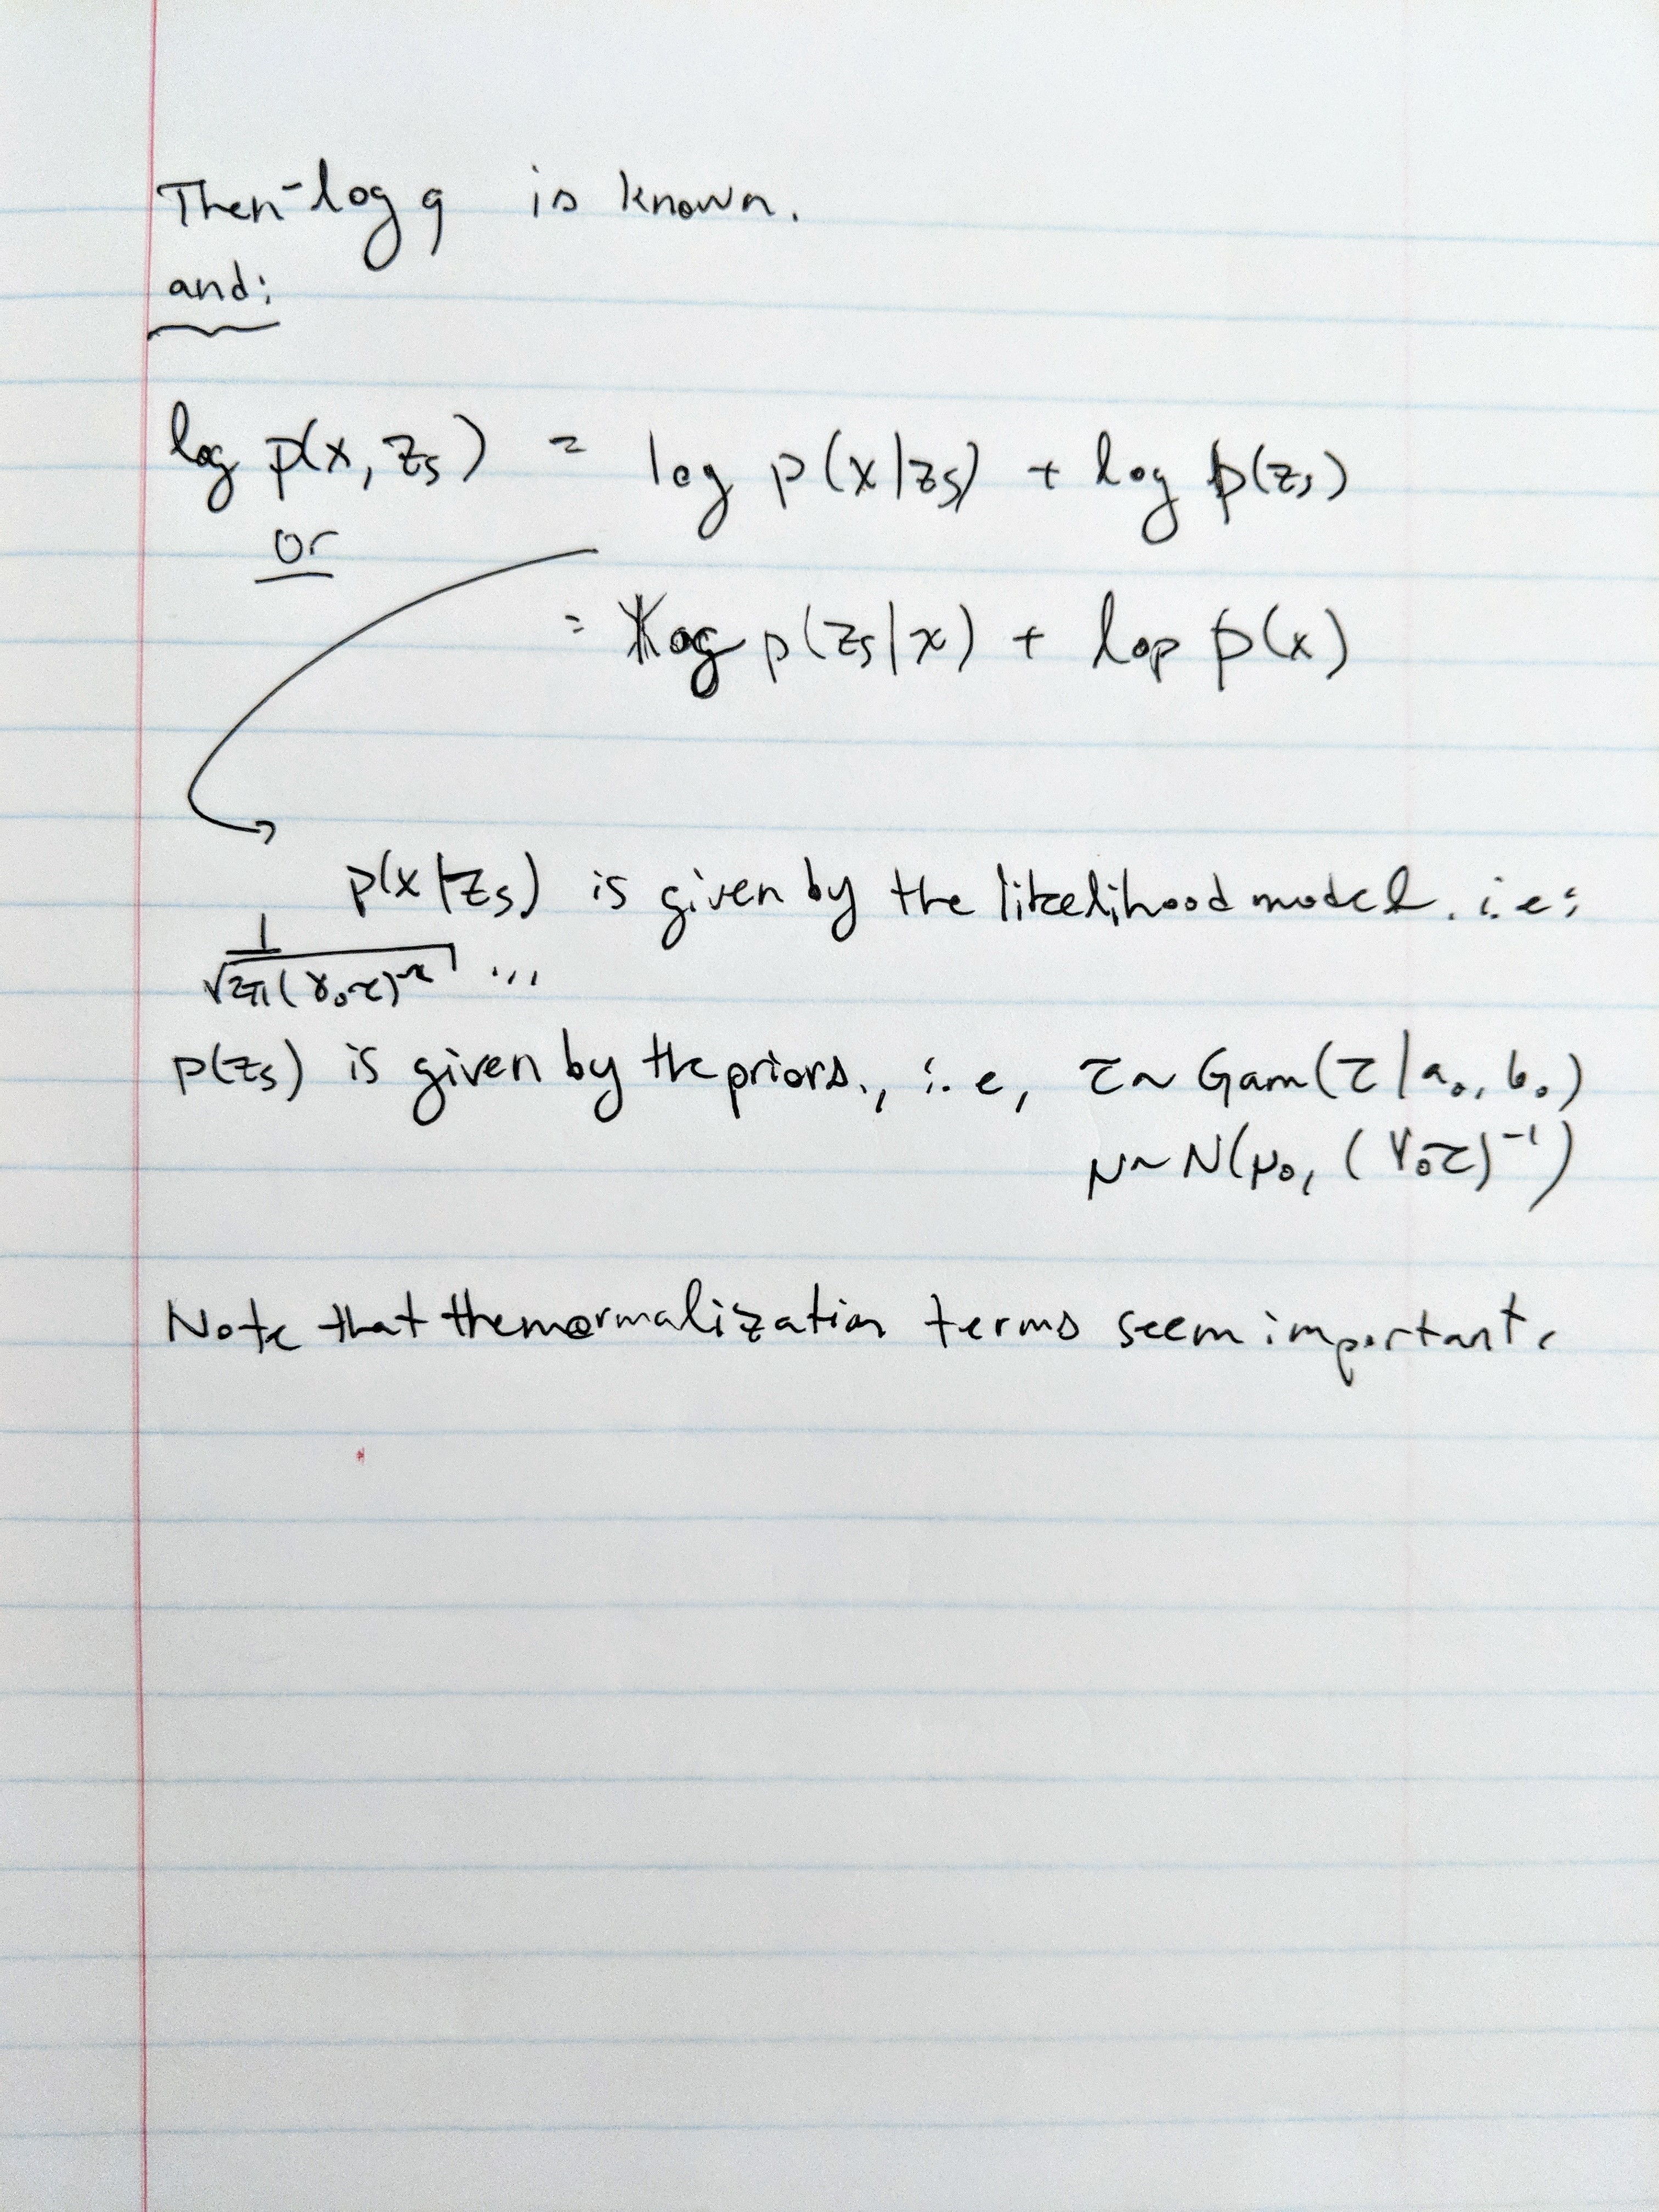 Then -log q is known.
and:
log p(x, z_s) = log p(x|z_s) + log p(z_s)
or
= log p(z_s|x) + log p(x)
p(x|z_s) is given by the likelihood model. i.e:
1
√2π(γ₀τ)⁻ ...
p(z_s) is given by the priors., i.e, τ ~ Gam(τ|a₀, b₀)
μ ~ N(μ₀, (γ₀τ)⁻¹)
Note that the normalization terms seem important.